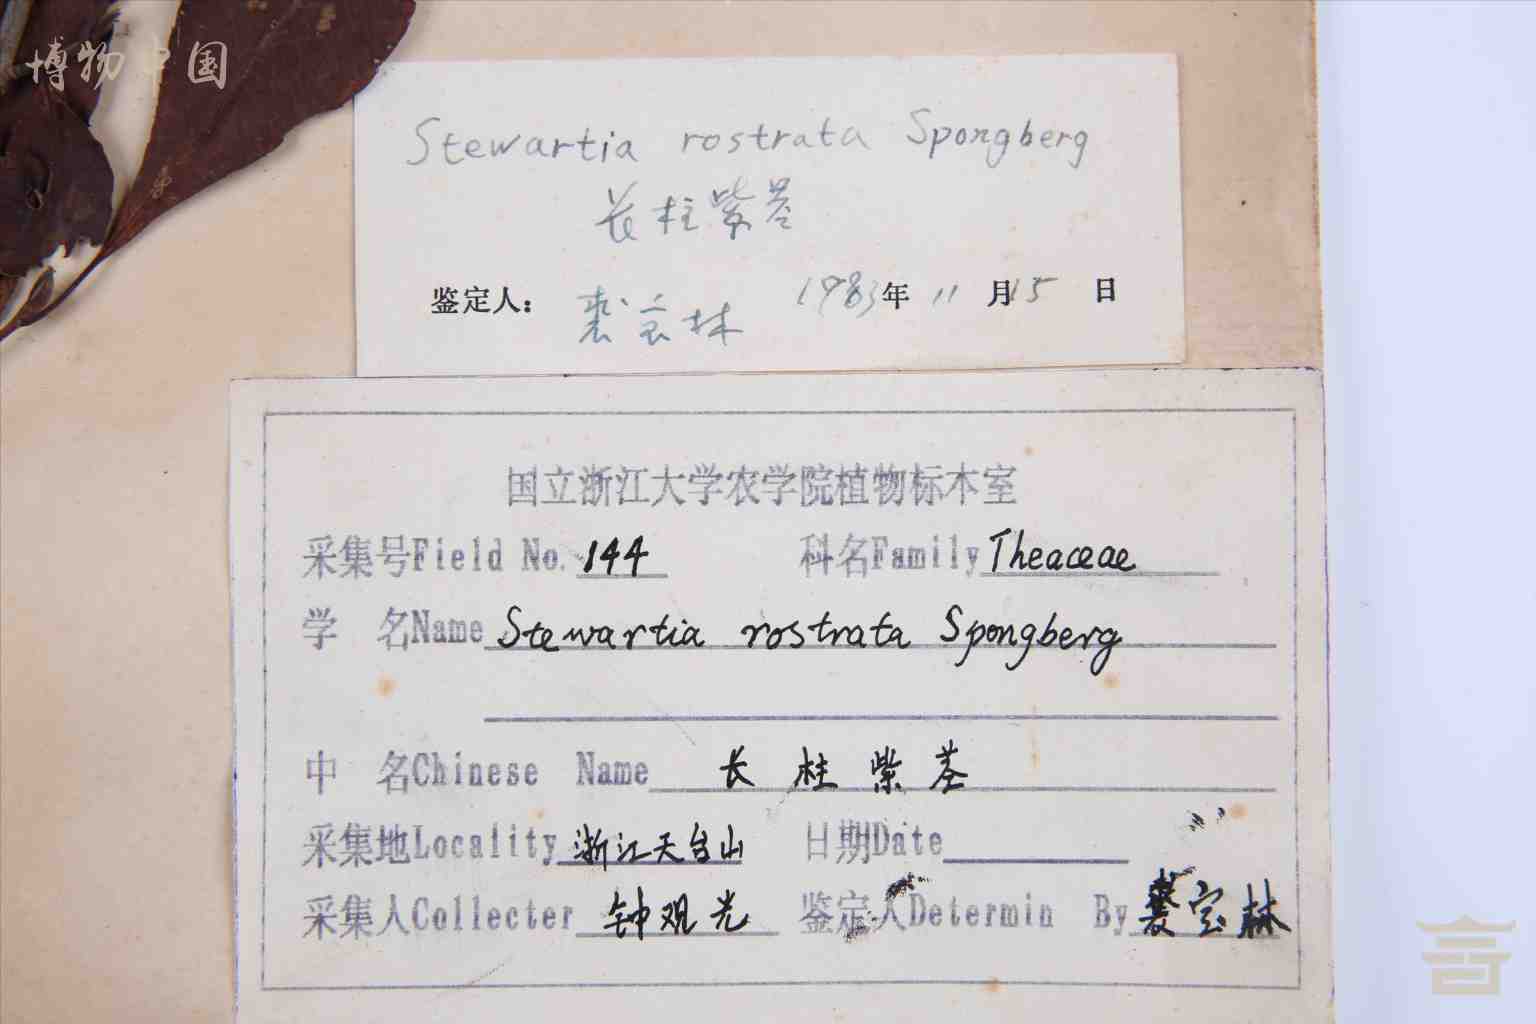 博物中国
Stewartia rostrata Spongberg
长柱紫茎
鉴定人: 裘宝林 1983年 11 月 15 日
国立浙江大学农学院植物标本室
采集号Field No. 144 科名Family Theaceae
学 名Name Stewartia rostrata Spongberg
中 名Chinese Name 长柱紫茎
采集地Locality 浙江天台山 日期Date
采集人Collecter 钟观光 鉴定人Determin By 裘宝林